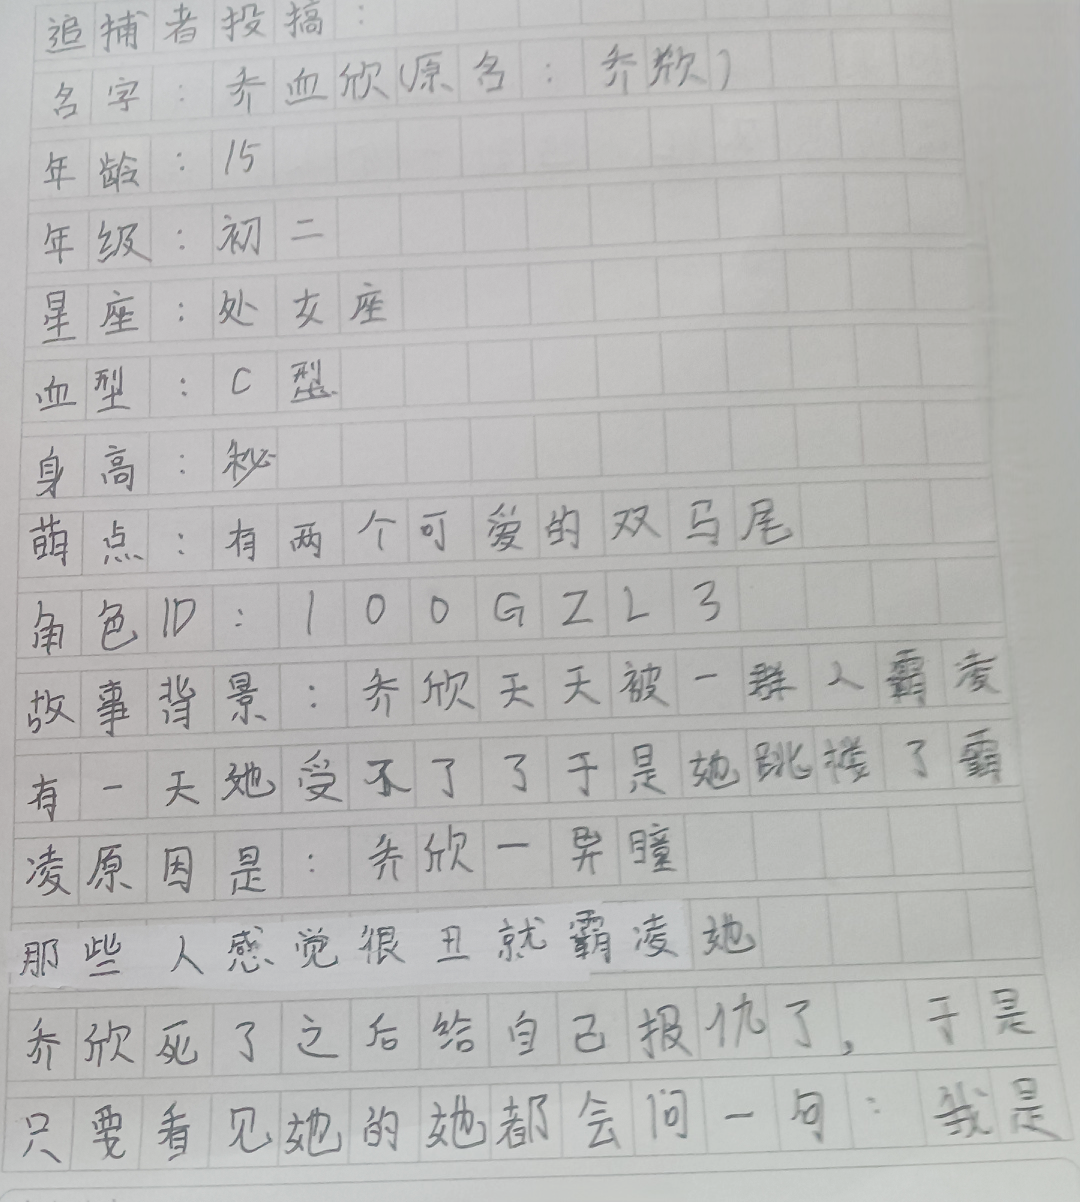 追捕者投搞：
名字：乔血欣(原名：乔欣)
年龄：15
年级：初二
星座：处女座
血型：C型
身高：秘
萌点：有两个可爱的双马尾
角色ID：100GZL3
故事背景：乔欣天天被一群人霸凌
有一天她受不了了于是她跳楼了霸
凌原因是：乔欣一异瞳
那些人感觉很丑就霸凌她
乔欣死了之后给自己报仇了，于是
只要看见她的她都会问一句：我是